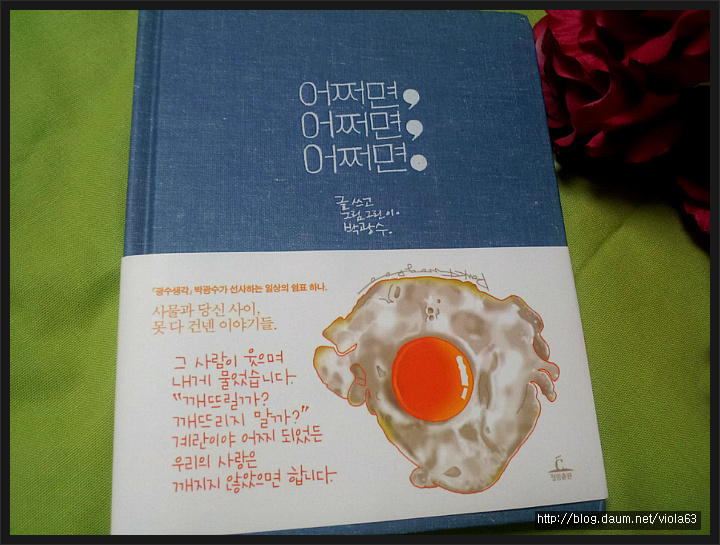 어쩌면,
어쩌면,
어쩌면.
글 쓰고
그림 그린 이.
박광수.
『광수생각』 박광수가 선사하는 일상의 쉼표 하나.
사물과 당신 사이,
못 다 건넨 이야기들.
그 사람이 웃으며
내게 물었습니다.
“깨뜨릴까?
깨뜨리지 말까?”
계란이야 어찌 되었든
우리의 사랑은
깨지지 않았으면 합니다.
청림출판
http://blog.daum.net/viola63